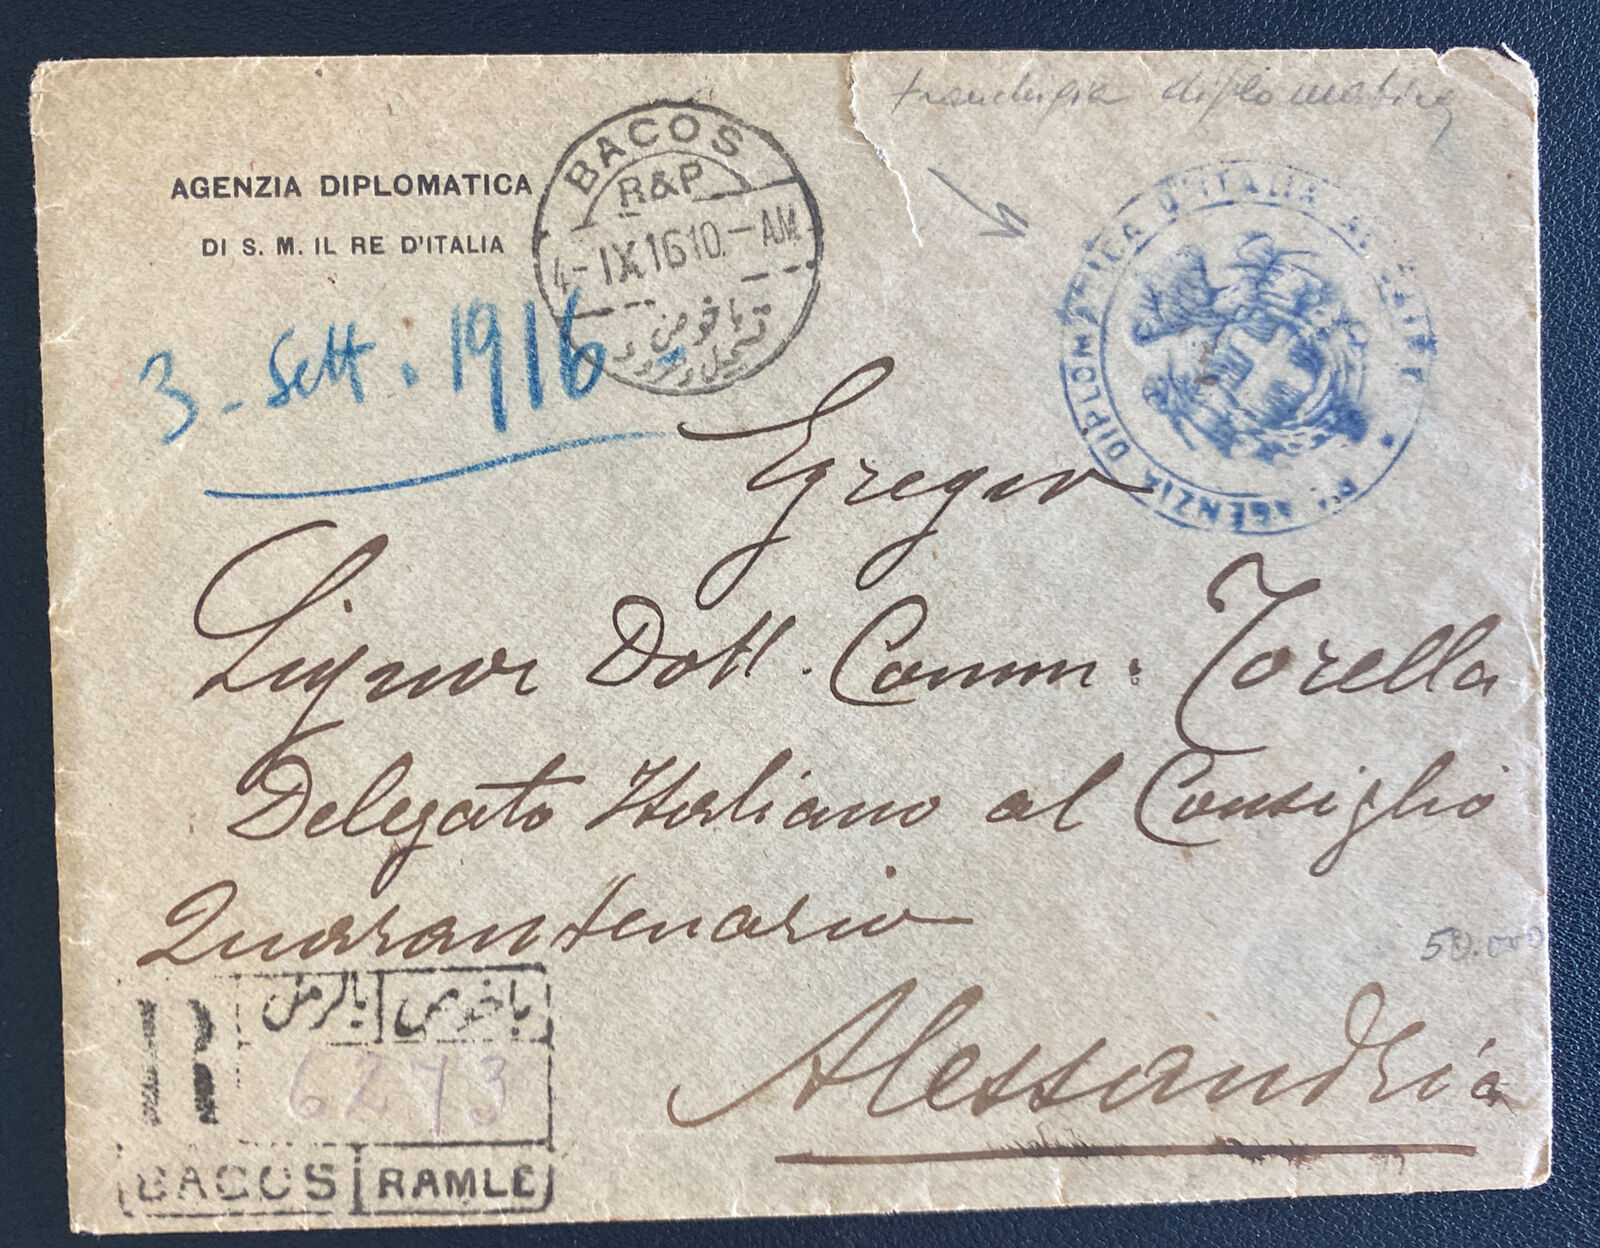 franchigia diplomatica
AGENZIA DIPLOMATICA
DI S. M. IL RE D'ITALIA
BACOS
R&P
4-IX.16 10.-AM
باخوص
3-Sett. 1916
R. AGENZIA DIPLOMATICA D'ITALIA
Egregio
Signor Dott. Comm. Torella
Delegato Italiano al Consiglio
Quarantenario
50.000
Alessandria
R
باخوص بالرمل
6273
BACOS RAMLE